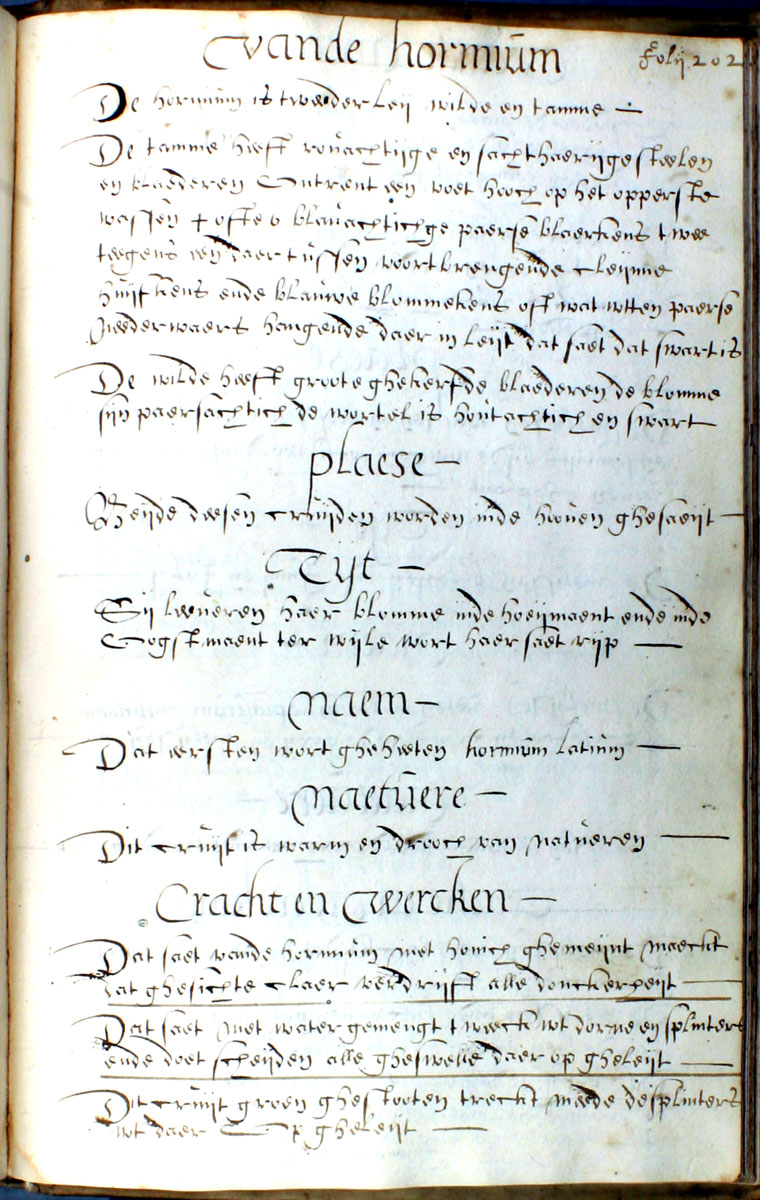 vande hormium
folij 202
De hormium is tweederleij wilde en tamme —
De tamme heeft rouachtijge en sachthaerijge steelen
en blaederen Omtrent een voet hooch op het opperste
wassen + ofte 6 blauachtichge paerse blaerkens twee
teegens een daer tussen voortbrengende cleijnne
huijskens ende blauwe blommekens oft wat wtten paerse
Neederwaers hangende daer in leijt dat saet dat swart is
De wilde heeft groote ghekerfde blaederen de blomme
sijn paersachtich de wortel is houtachtich en swart
plaese —
Beijde deesen cruijden worden inde hoouen ghesaeijt —
Tijt —
Sij leeueren haer blomme inde hoeijmaent ende inde
Oogstmaent ter wijle wort haer saet rijp —
naem —
Dat eersten wort gheheeten hormium latium —
naetuere —
Dit cruijt is warm en drooch van natueren —
Cracht en wercken —
Dat saet vande hormium met honich ghemeijnt maeckt
dat ghesichte claer verdrijft alle donckerheijt —
Dat saet met water gemengt tweeck wt dorne en splinters
ende doet scheijden alle gheswelle daer op gheleijt —
Dit cruijt groen ghestooten treckt meede de splinters
wt daer Op gheleijt —